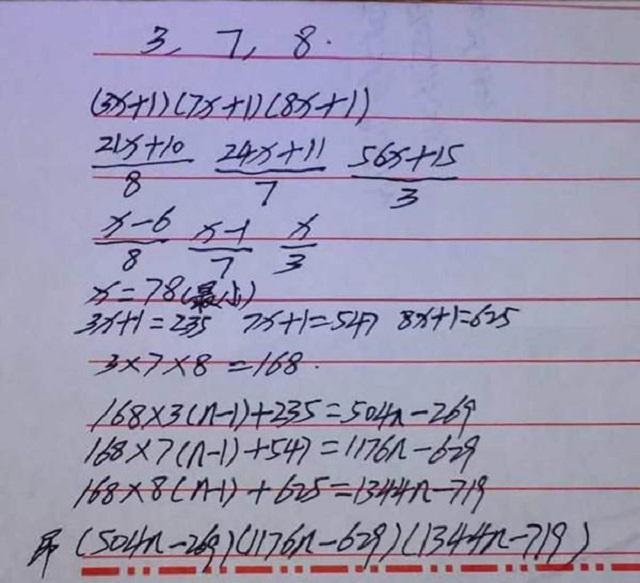 3, 7, 8.
(3x+1)(7x+1)(8x+1)
(21x+10)/8 (24x+11)/7 (56x+15)/3
(x-6)/8 (x-1)/7 x/3
x=78(最小)
3x+1=235 7x+1=547 8x+1=625
3×7×8=168.
168×3(n-1)+235=504n-269
168×7(n-1)+547=1176n-629
168×8(n-1)+625=1344n-719
即(504n-269)(1176n-629)(1344n-719)